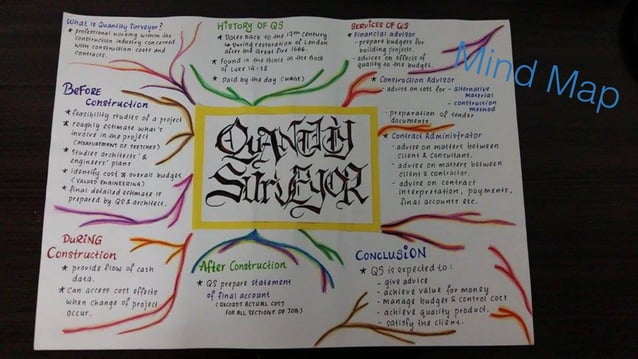 What is Quantity Surveyor?
* professional working within the
construction industry concerned
with construction costs and
contracts.
HISTORY OF QS
* Dates back to the 17th century
↳ During restoration of London
after the Great Fire 1666.
* Found in the Bible in the Book
of Luke 14:28
* paid by the day (WAGE)
SERVICES OF QS
* Financial advisor
- prepare budgets for
building projects.
- advices on effects of
quality to the budget.
* Construction Advisor
- advise on cost for - alternative
material
- construction
method
- preparation of tender
documents.
* Contract Administrator
- advise on matters between
client & consultant.
- advise on matters between
client & contractor.
- advise on contract
interpretation, payments,
final accounts etc.
Mind Map
BEFORE
Construction
* feasibility studies of a project
* roughly estimate what's
involve in the project
(MEASUREMENT OF SKETCHES)
* studies architects' &
engineers' plant
* identify cost & overall budget
(VALUED ENGINEERING)
* final detailed estimate is
prepared by QS & architect.
QUANTITY
SURVEYOR
DURING
Construction
* provide flow of cash
data.
* can access cost effects
when change of project
occur.
After Construction
* QS prepare statement
of final account
(RECORDS ACTUAL COST
FOR ALL SECTIONS OF JOB)
CONCLUSION
* QS is expected to :
- give advice
- achieve value for money
- manage budget & control cost
- achieve quality product.
- satisfy the client.